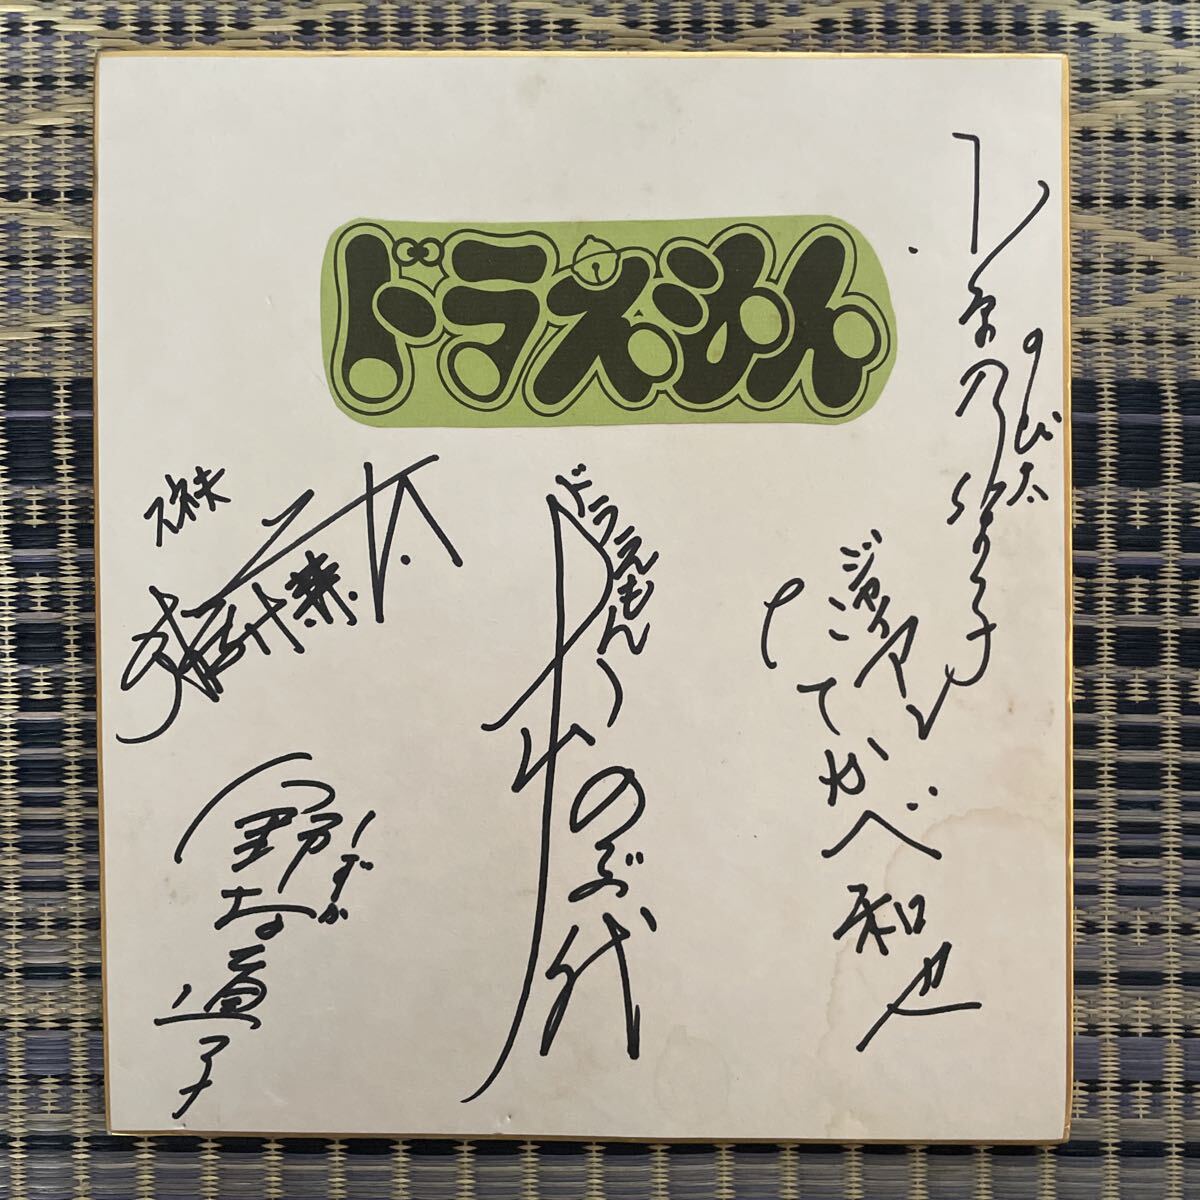 ドラえもん
のび太
小原乃梨子
ジャイアン
たてかべ和也
ドラえもん
大山のぶ代
スネ夫
肝付兼太
しずか
野村道子